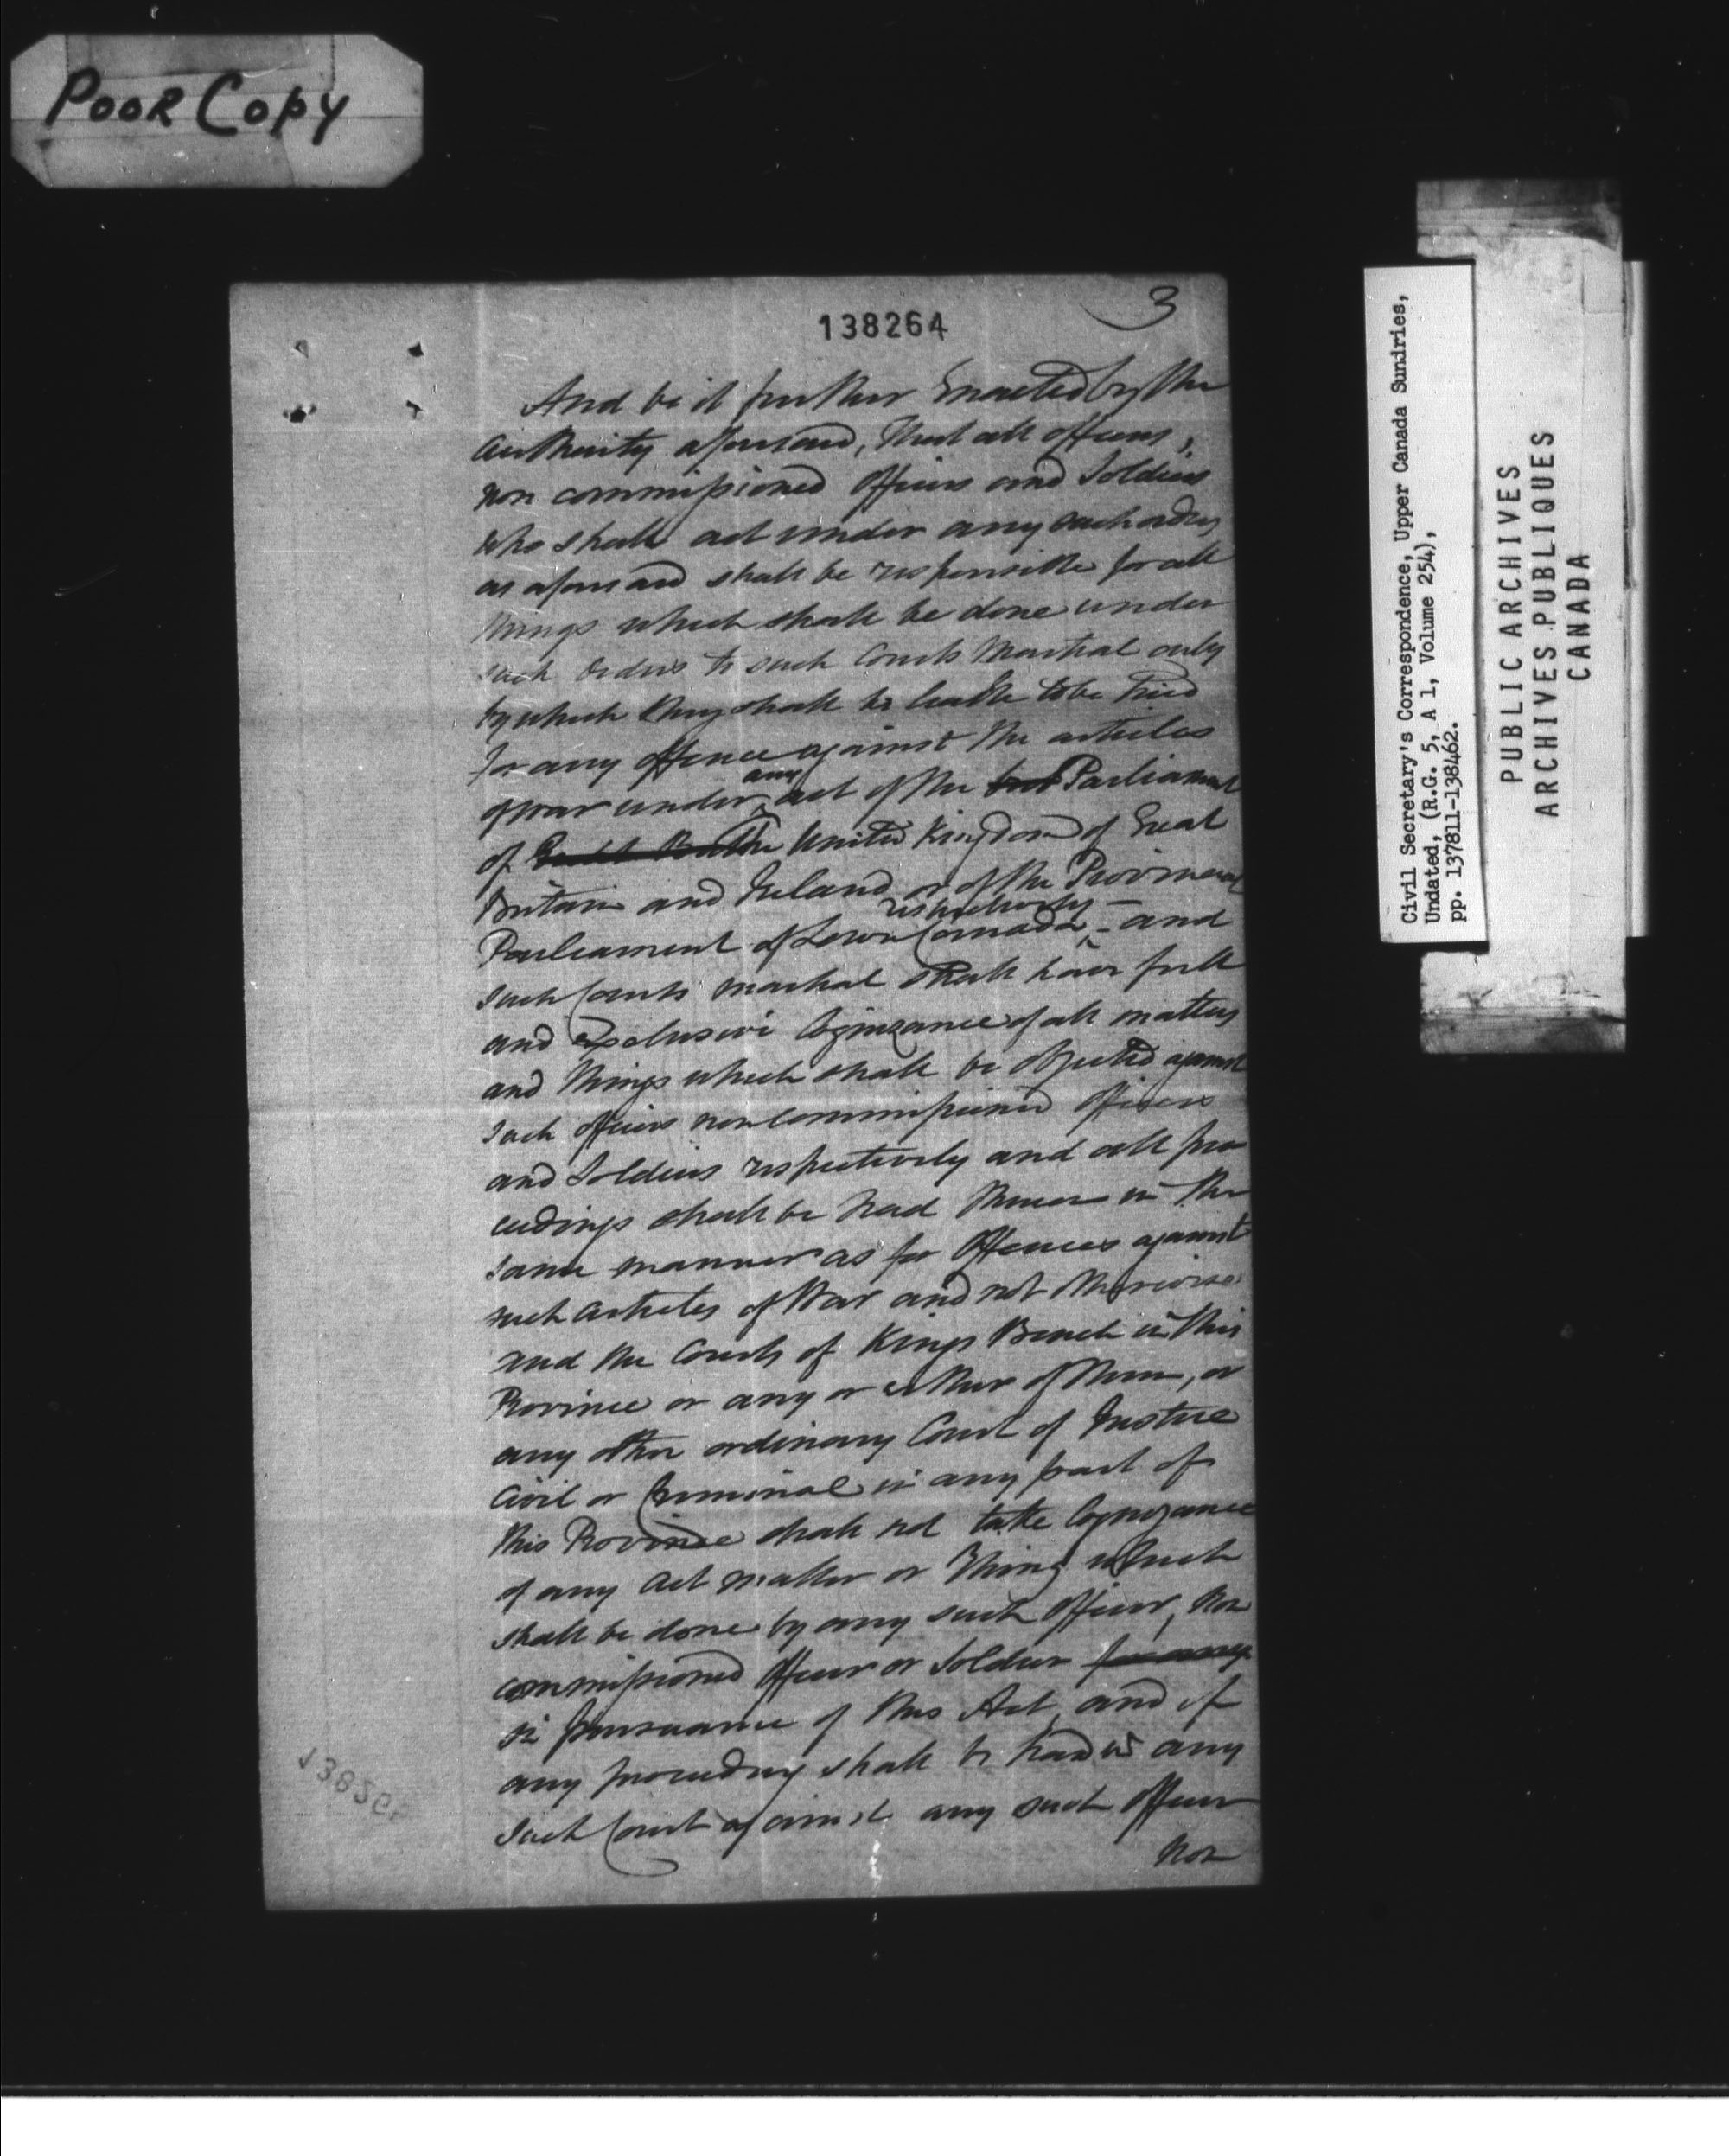 POOR COPY
3
138264
And be it further Enacted by the
authority aforesaid, That all officers,
non commissioned Officers and Soldiers
who shall act under any such orders
as aforesaid shall be responsible for all
things which shall be done under
such Orders to such Courts Martial only
by which they shall be liable to be tried
for any offence against the articles
of war under any act of the Parliament
of the United Kingdom of Great
Britain and Ireland or of the Provincial
Parliament of Lower Canada respectively - and
such Courts martial shall have full
and exclusive Cognizance of all matters
and things which shall be objected against
such officers non commissioned officers
and Soldiers respectively and all pro
ceedings shall be had thereon in the
same manner as for Offences against
such articles of War and not otherwise
and the Courts of Kings Bench in this
Province or any or either of them, or
any other ordinary Court of Justice
Civil or Criminal in any part of
this Province shall not take Cognizance
of any Act matter or Thing which
shall be done by any such Officer, Non
commissioned Officer or Soldier for any
in pursuance of this Act, and if
any proceeding shall be had in any
such Court against any such Officer
Non
Civil Secretary's Correspondence, Upper Canada Sundries,
Undated, (R.G. 5, A 1, Volume 254),
pp. 137811-138462.
PUBLIC ARCHIVES
ARCHIVES PUBLIQUES
CANADA